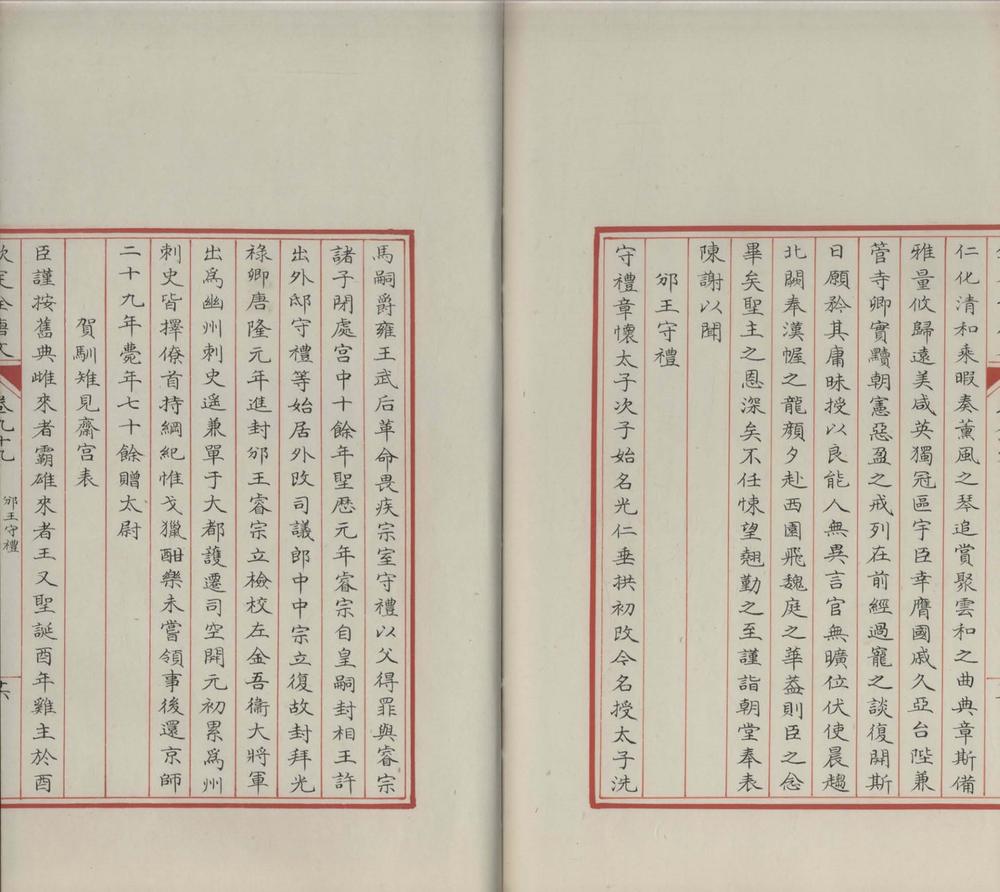 仁化清和乘暇奏薰風之琴追賞聚雲和之曲典章斯備
雅量攸歸遠美咸英獨冠區宇臣幸膺國戚久亞台陛兼
菅寺卿實黷朝憲惡盈之戒列在前經過寵之談復關斯
日願矜其庸昧授以良能人無異言官無曠位伏使晨趨
北闕奉漢幄之龍顏夕赴西園飛魏庭之華葢則臣之念
畢矣聖主之恩深矣不任悚望翹勤之至謹詣朝堂奉表
陳謝以聞
邠王守禮
守禮章懷太子次子始名光仁垂拱初改今名授太子洗
馬嗣爵雍王武后革命畏疾宗室守禮以父得罪與睿宗
諸子閉處宮中十餘年聖歷元年睿宗自皇嗣封相王許
出外邸守禮等始居外改司議郎中中宗立復故封拜光
祿卿唐隆元年進封邠王睿宗立檢校左金吾衞大將軍
出爲幽州刺史遙兼單于大都護遷司空開元初累爲州
刺史皆擇僚首持綱紀惟弋獵酣樂未嘗領事後還京師
二十九年薨年七十餘贈太尉
賀馴雉見齋宮表
臣謹按舊典雌來者霸雄來者王又聖誕酉年雞主於酉
欽定全唐文
卷九十九
邠王守禮